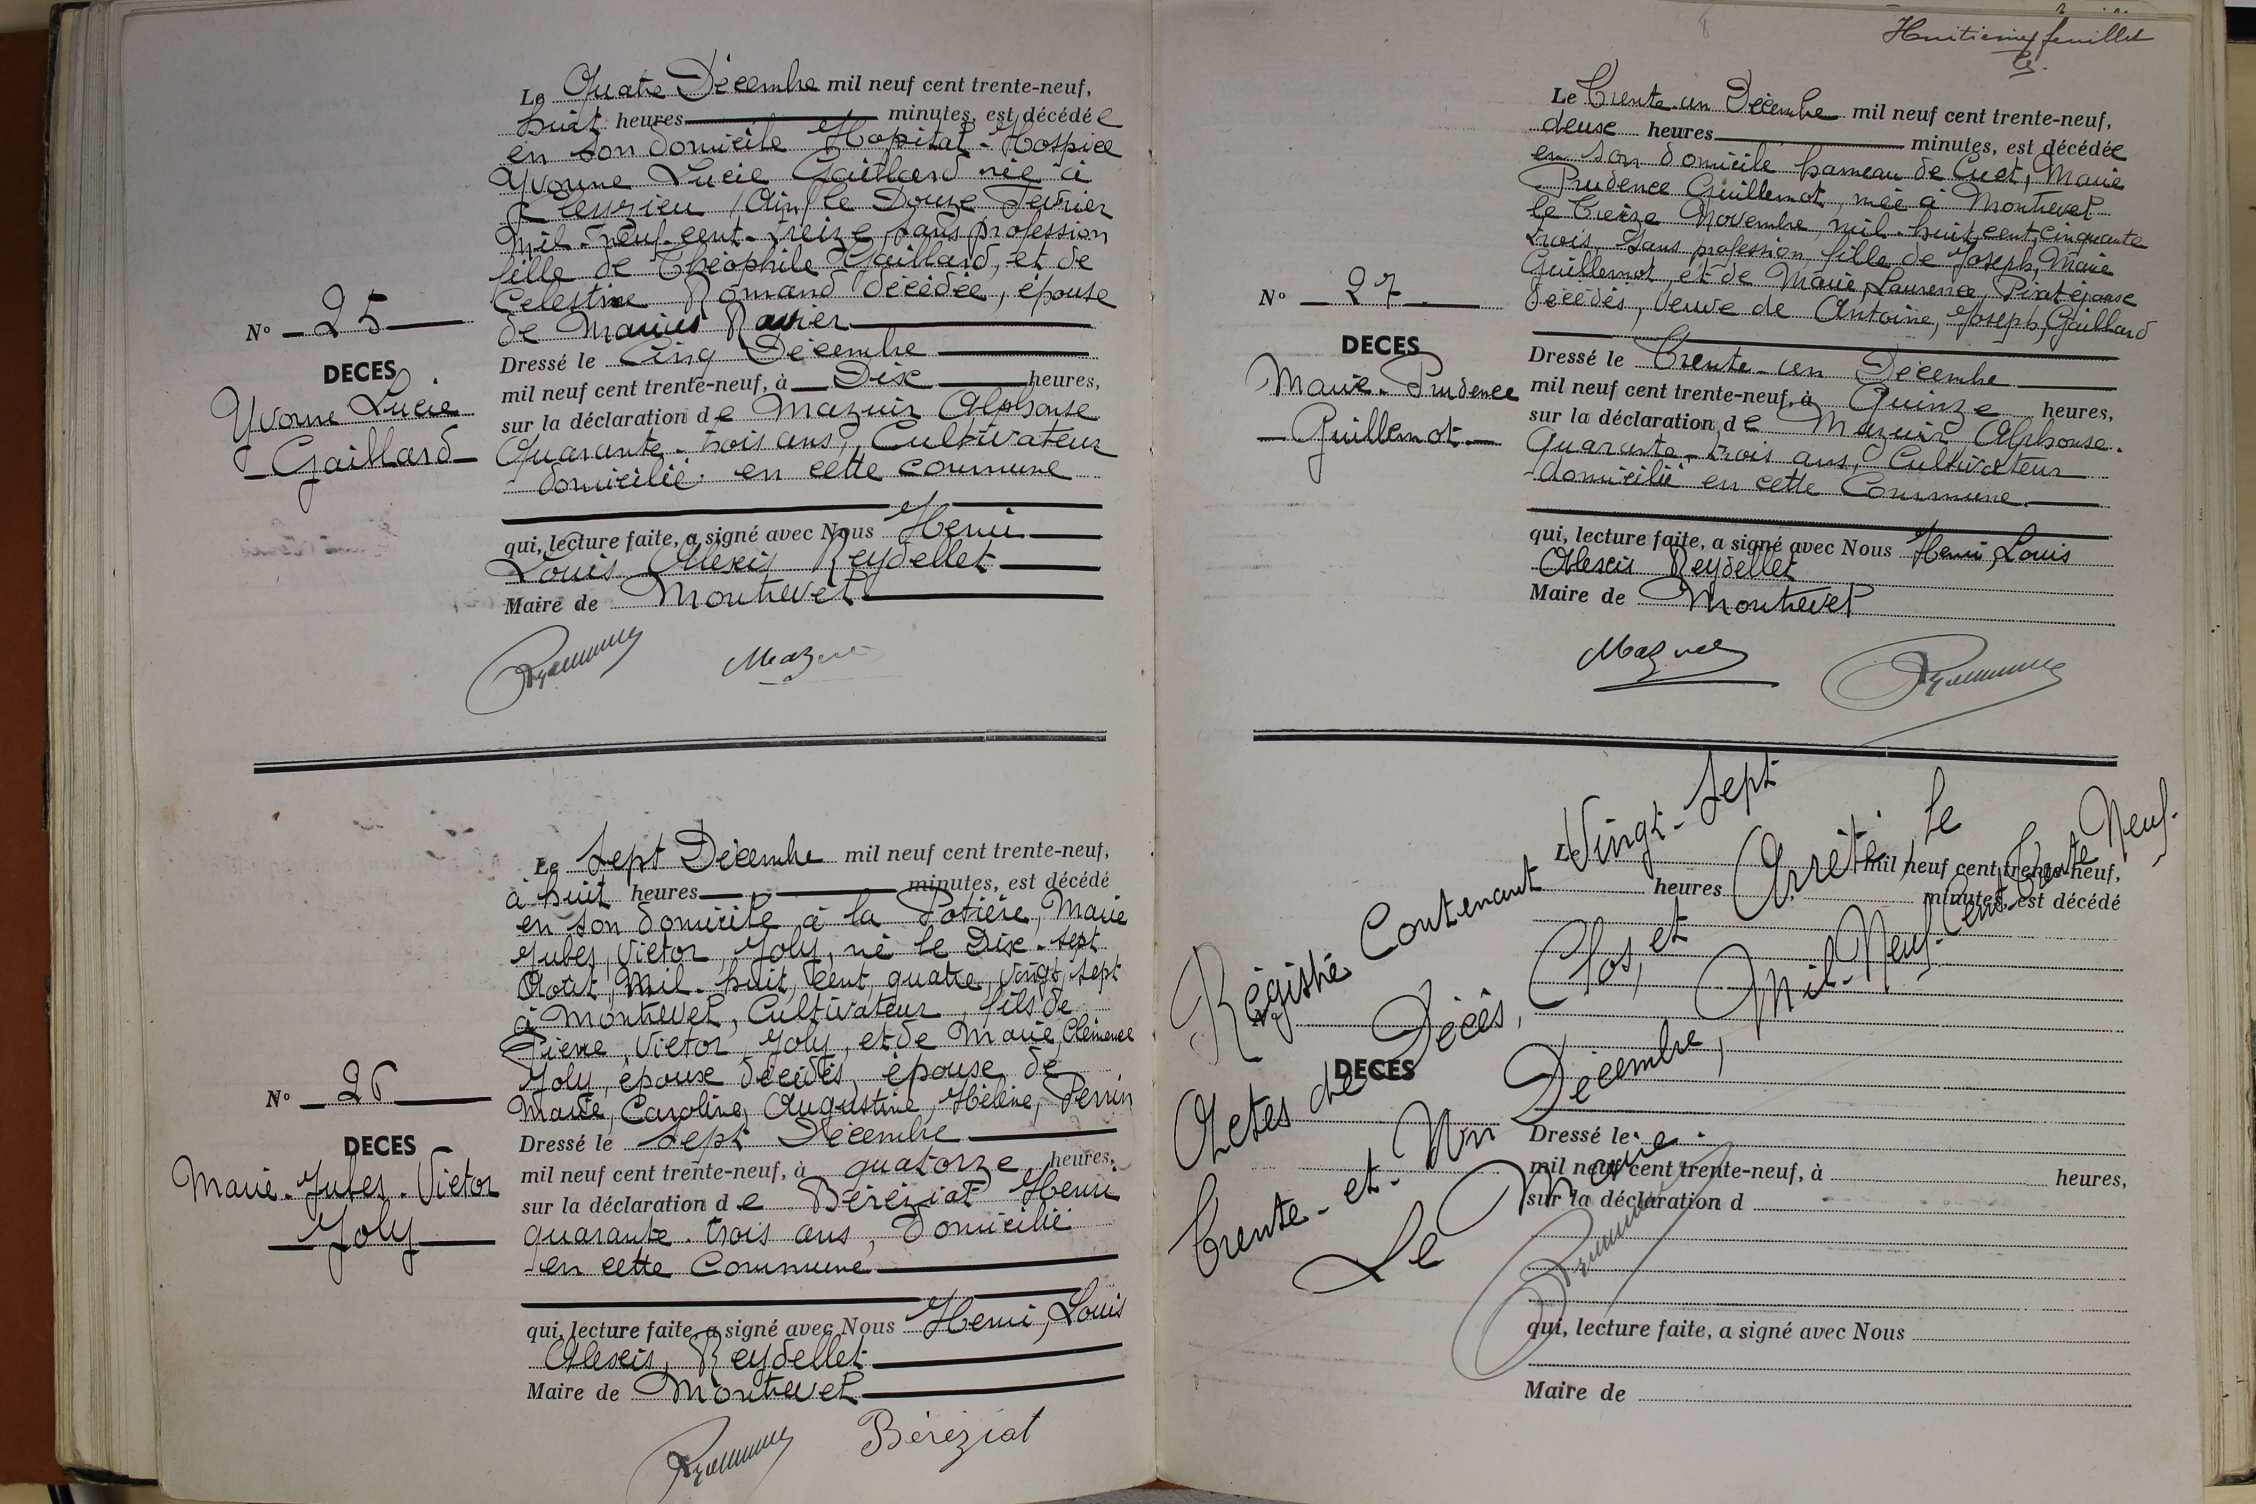 Le Quatre Décembre mil neuf cent trente-neuf,
huit heures minutes, est décédée
en son domicile Hopital-Hospice
Yvonne Lucie Gaillard née à
(Ain) le Douze Fevrier
mil-neuf-cent-treize, sans profession
fille de Théophile Gaillard, et de
Celestine Romand décédée, épouse
de Marius
N° 25
DECES
Yvonne Lucie
Gaillard
Dressé le Cinq Décembre
mil neuf cent trente-neuf, à Dix heures,
sur la déclaration de Mazuir Alphonse
Quarante-trois ans, Cultivateur
domicilié en cette commune
qui, lecture faite, a signé avec Nous Henri
Louis Alexis Reydellet
Maire de Montrevel
Le Sept Décembre mil neuf cent trente-neuf,
à huit heures minutes, est décédé
en son domicile à la Potière, Marie
Jules, Victor, Joly, né le Dix-sept
Août, Mil-huit, cent, quatre, vingt, sept
à Montrevel, Cultivateur, fils de
Pierre, Victor, Joly, et de Marie, Clémence
Joly, époux décédés, épouse de
Marie, Caroline, Augustine, Hélène, Perrin
N° 26
DECES
Marie-Jules-Victor
Joly
Dressé le Sept Décembre
mil neuf cent trente-neuf, à quatorze heures,
sur la déclaration de Béréziat Henri
quarante-trois ans, Domicilié
en cette Commune
qui, lecture faite, a signé avec Nous Henri, Louis
Alexis, Reydellet
Maire de Montrevel
Béréziat
Huitième feuillet
Le Trente-un Décembre mil neuf cent trente-neuf,
deux heures minutes, est décédée
en son domicile hameau de Cuet, Marie
Prudence Guillemot, née à Montrevel
le treize Novembre, mil-huit, cent, cinquante
trois, sans profession, fille de Joseph, Marie
Guillemot, et de Marie, Laurence, Pirat épouse
décédés, veuve de Antoine, Joseph, Gaillard
N° 27
DECES
Marie-Prudence
Guillemot
Dressé le Trente-un Décembre
mil neuf cent trente-neuf, à Quinze heures,
sur la déclaration de Mazuir Alphonse.
Quarante-trois ans, Cultivateur
domicilié en cette Commune
qui, lecture faite, a signé avec Nous Henri, Louis
Alexis Reydellet
Maire de Montrevel
Régistre Contenant Vingt-Sept
Actes de Décès, Clos, et Arrêté, le
Trente-et-Un Décembre, Mil-Neuf-Cent-Trente Neuf.
Le Maire
Le mil neuf cent trente-neuf,
heures minutes, est décédé
N°
DECES
Dressé le
mil neuf cent trente-neuf, à heures,
sur la déclaration d
qui, lecture faite, a signé avec Nous
Maire de